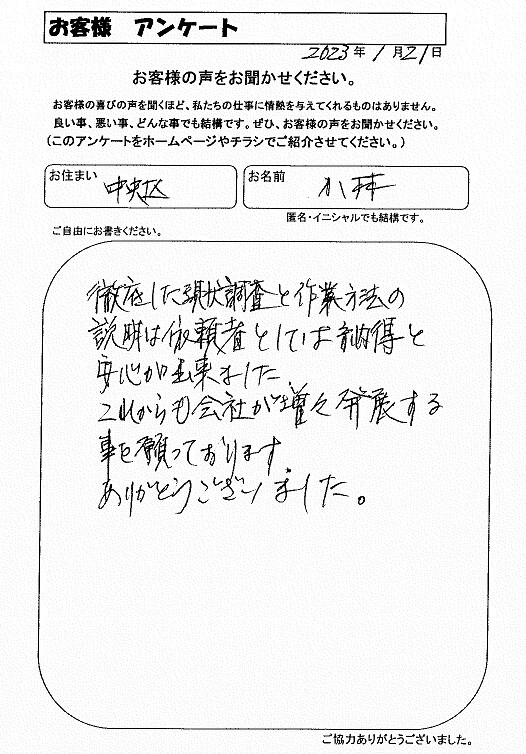 お客様 アンケート
2023年1月21日
お客様の声をお聞かせください。
お客様の喜びの声を聞くほど、私たちの仕事に情熱を与えてくれるものはありません。
良い事、悪い事、どんな事でも結構です。ぜひ、お客様の声をお聞かせください。
(このアンケートをホームページやチラシでご紹介させてください。)
お住まい 中央区
お名前 小林
匿名・イニシャルでも結構です。
ご自由にお書きください。
徹底した現状調査と作業方法の
説明は依頼者としては納得と
安心が出来ました。
これからも会社が増々発展する
事を願っております。
ありがとうございました。
ご協力ありがとうございました。